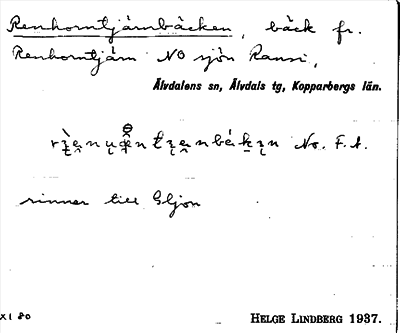 Renhorntjärnbäcken, bäck fr.
Renhorntjärn NO sjön Ransi,
Älvdalens sn, Älvdals tg, Kopparbergs län.
No. F. A.
rinner till Eljon
XI 80
HELGE LINDBERG 1937.